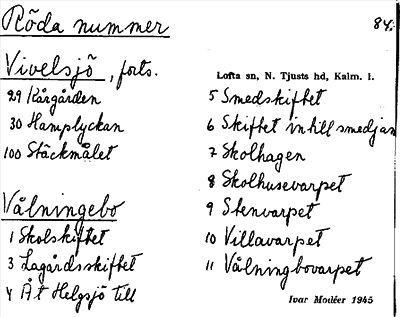 Röda nummer
84:
Vivelsjö, forts.
29 Kårgården
30 Hamplyckan
100 Stäckmålet
Vålningebo
1 Skolskiftet
3 Lagårdsskiftet
4 Åt Helgsjö till
Lofta sn, N. Tjusts hd, Kalm. l.
5 Smedskiftet
6 Skiftet intill smedjan
7 Skolhagen
8 Skolhusevarpet
9 Stenvarpet
10 Villavarpet
11 Vålningbovarpet
Ivar Modéer 1945